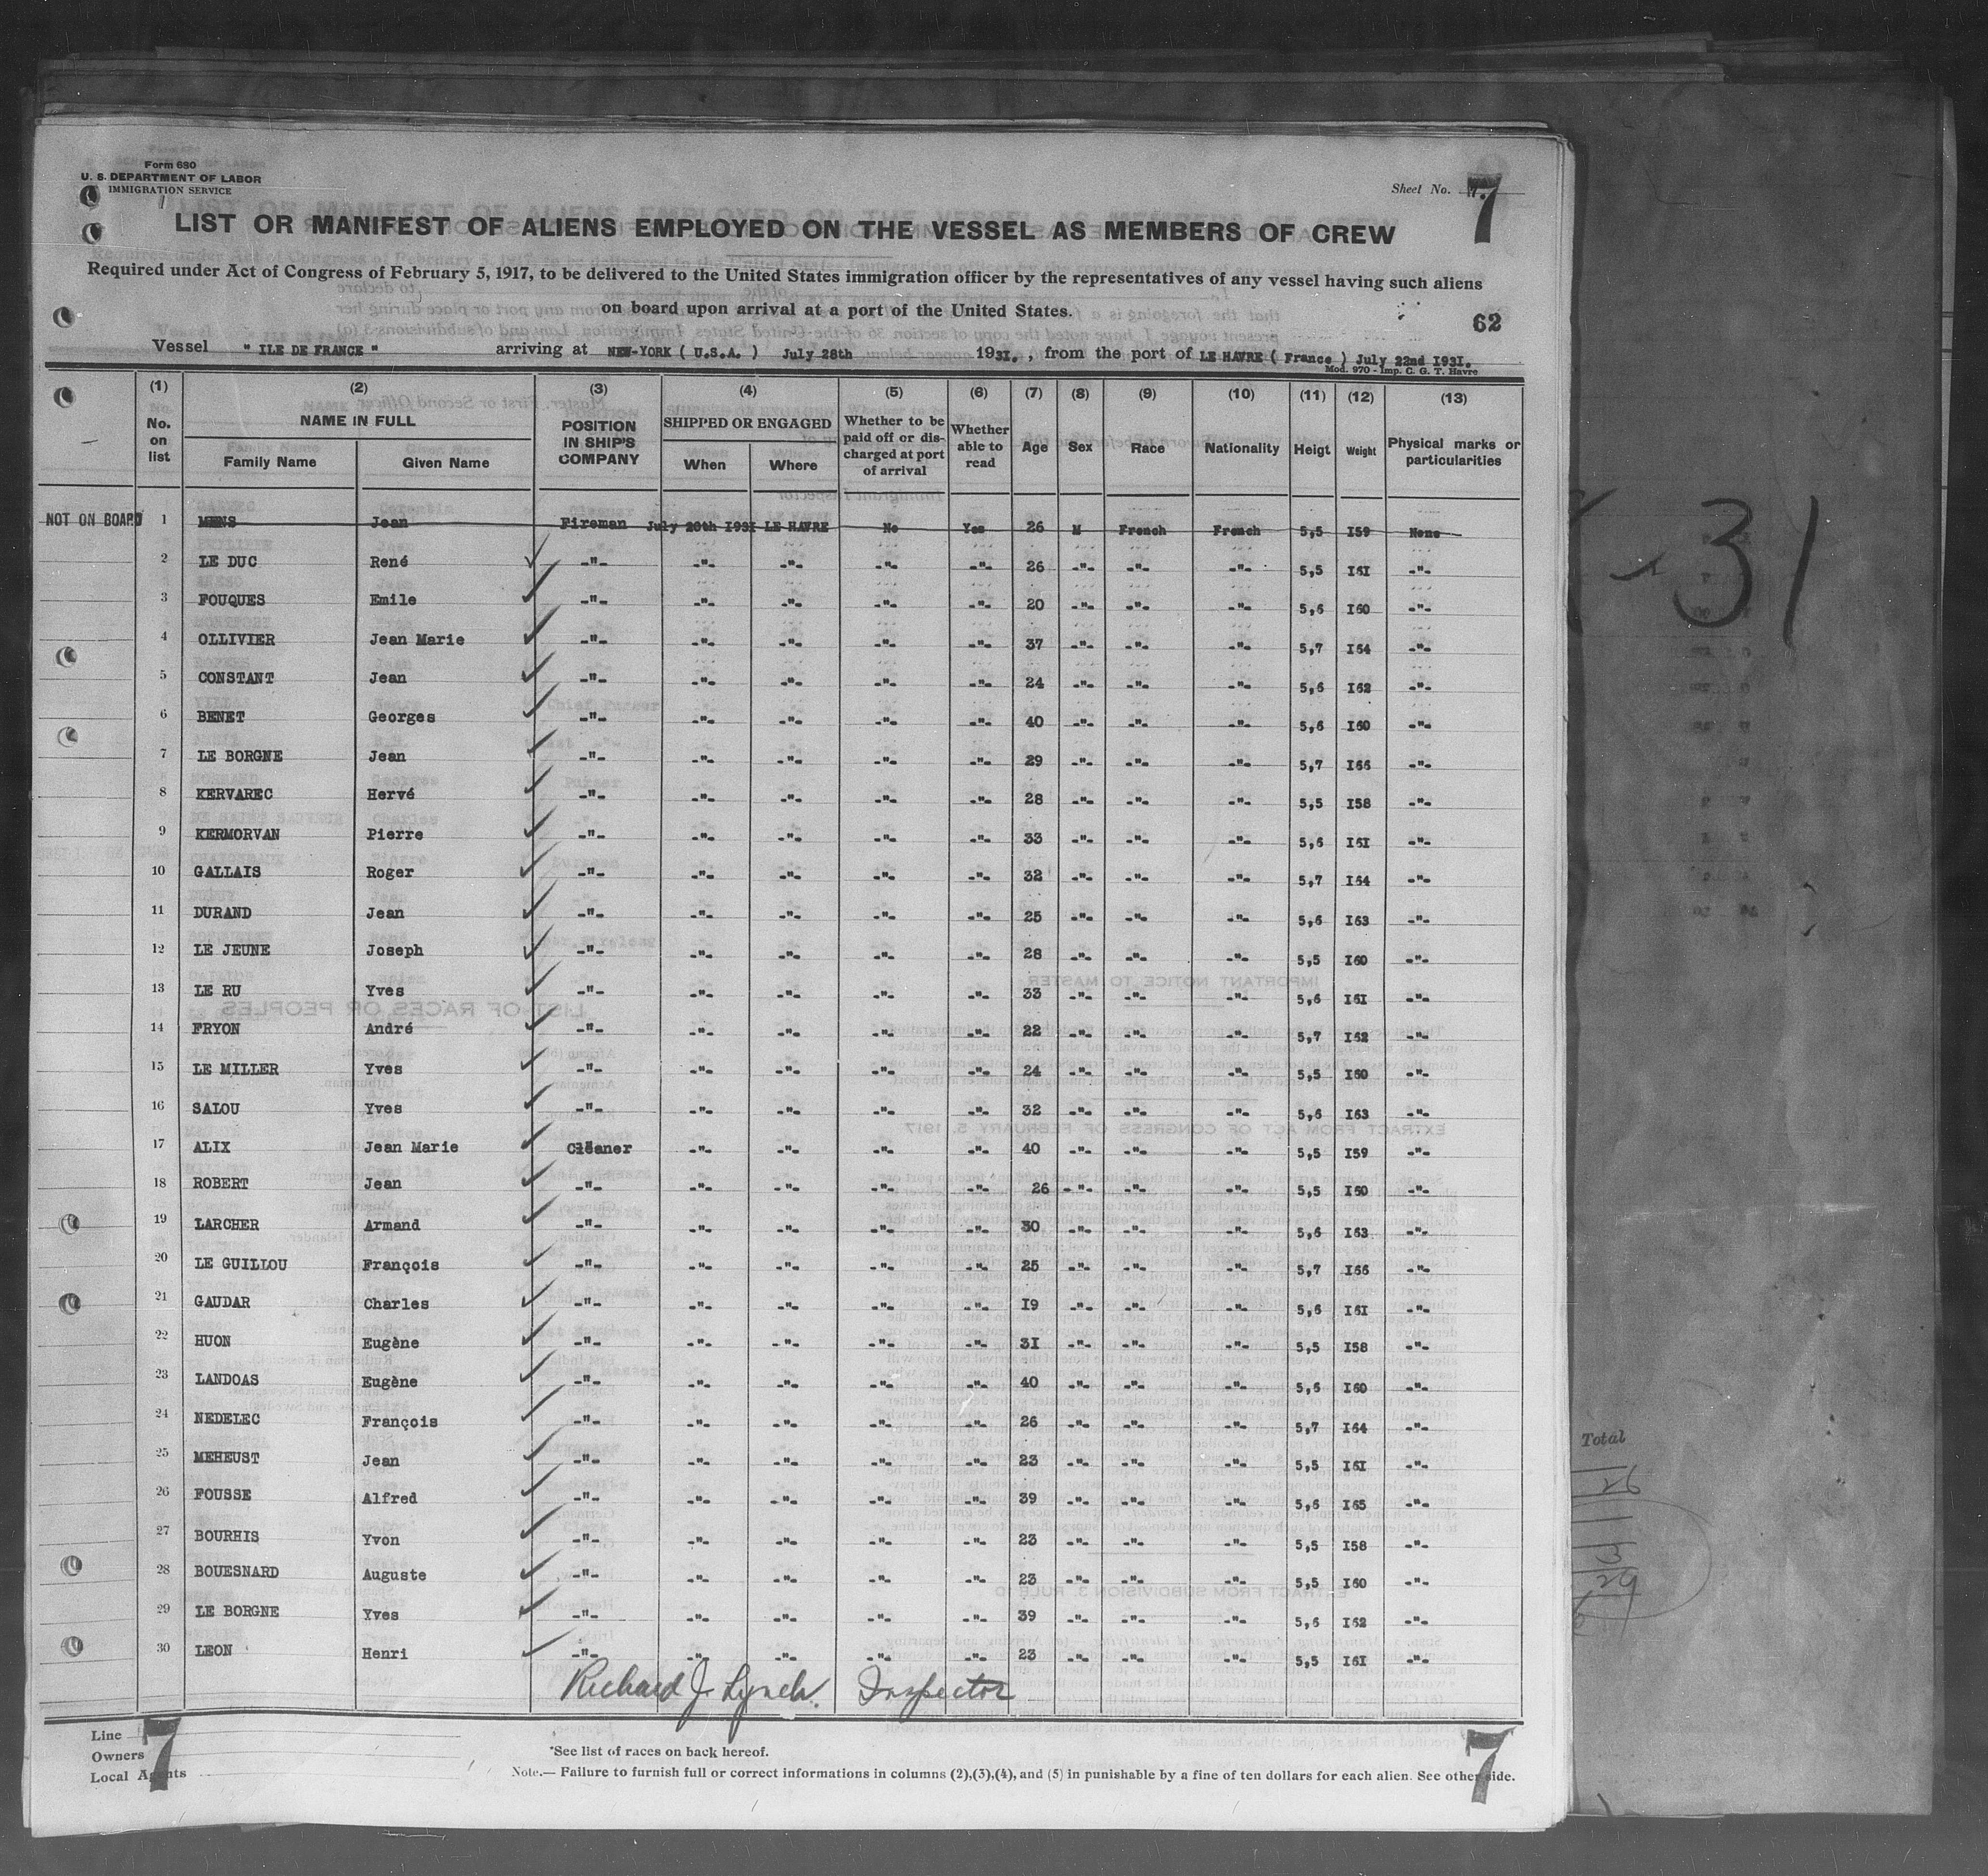 Form 680
U. S. DEPARTMENT OF LABOR
IMMIGRATION SERVICE
Sheet No. 7
LIST OR MANIFEST OF ALIENS EMPLOYED ON THE VESSEL AS MEMBERS OF CREW
Required under Act of Congress of February 5, 1917, to be delivered to the United States immigration officer by the representatives of any vessel having such aliens
on board upon arrival at a port of the United States.
62
Vessel " ILE DE FRANCE " arriving at NEW-YORK ( U.S.A. ) July 28th 1931. , from the port of LE HAVRE ( France ) July 22nd I93I.
Mod. 970 - Imp. C. G. T. Havre
(1) (2) (3) (4) (5) (6) (7) (8) (9) (10) (11) (12) (13)
No. on list NAME IN FULL Family Name Given Name POSITION IN SHIP'S COMPANY SHIPPED OR ENGAGED When Where Whether to be paid off or discharged at port of arrival Whether able to read Age Sex Race Nationality Heigt Weight Physical marks or particularities
NOT ON BOARD 1 MENS Jean Fireman July 20th I93I LE HAVRE No Yes 26 M French French 5,5 I59 None
2 LE DUC René -"- -"- -"- -"- -"- 26 -"- -"- -"- 5,5 I6I -"-
3 FOUQUES Emile -"- -"- -"- -"- -"- 20 -"- -"- -"- 5,6 I60 -"-
4 OLLIVIER Jean Marie -"- -"- -"- -"- -"- 37 -"- -"- -"- 5,7 I64 -"-
5 CONSTANT Jean -"- -"- -"- -"- -"- 24 -"- -"- -"- 5,6 I62 -"-
6 BENET Georges -"- -"- -"- -"- -"- 40 -"- -"- -"- 5,6 I60 -"-
7 LE BORGNE Jean -"- -"- -"- -"- -"- 29 -"- -"- -"- 5,7 I66 -"-
8 KERVAREC Hervé -"- -"- -"- -"- -"- 28 -"- -"- -"- 5,5 I58 -"-
9 KERMORVAN Pierre -"- -"- -"- -"- -"- 33 -"- -"- -"- 5,6 I6I -"-
10 GALLAIS Roger -"- -"- -"- -"- -"- 32 -"- -"- -"- 5,7 I64 -"-
11 DURAND Jean -"- -"- -"- -"- -"- 25 -"- -"- -"- 5,6 I63 -"-
12 LE JEUNE Joseph -"- -"- -"- -"- -"- 28 -"- -"- -"- 5,5 I60 -"-
13 LE RU Yves -"- -"- -"- -"- -"- 33 -"- -"- -"- 5,6 I6I -"-
14 FRYON André -"- -"- -"- -"- -"- 22 -"- -"- -"- 5,7 I62 -"-
15 LE MILLER Yves -"- -"- -"- -"- -"- 24 -"- -"- -"- 5,5 I60 -"-
16 SALOU Yves -"- -"- -"- -"- -"- 32 -"- -"- -"- 5,6 I63 -"-
17 ALIX Jean Marie Cleaner -"- -"- -"- -"- 40 -"- -"- -"- 5,5 I59 -"-
18 ROBERT Jean -"- -"- -"- -"- -"- 26 -"- -"- -"- 5,5 I60 -"-
19 LARCHER Armand -"- -"- -"- -"- -"- 30 -"- -"- -"- 5,6 I63 -"-
20 LE GUILLOU François -"- -"- -"- -"- -"- 25 -"- -"- -"- 5,7 I66 -"-
21 GAUDAR Charles -"- -"- -"- -"- -"- I9 -"- -"- -"- 5,6 I6I -"-
22 HUON Eugène -"- -"- -"- -"- -"- 3I -"- -"- -"- 5,5 I58 -"-
23 LANDOAS Eugène -"- -"- -"- -"- -"- 40 -"- -"- -"- 5,6 I60 -"-
24 NEDELEC François -"- -"- -"- -"- -"- 26 -"- -"- -"- 5,7 I64 -"-
25 MEHEUST Jean -"- -"- -"- -"- -"- 23 -"- -"- -"- 5,5 I6I -"-
26 FOUSSE Alfred -"- -"- -"- -"- -"- 39 -"- -"- -"- 5,6 I65 -"-
27 BOURHIS Yvon -"- -"- -"- -"- -"- 23 -"- -"- -"- 5,5 I58 -"-
28 BOUESNARD Auguste -"- -"- -"- -"- -"- 23 -"- -"- -"- 5,5 I60 -"-
29 LE BORGNE Yves -"- -"- -"- -"- -"- 39 -"- -"- -"- 5,6 I62 -"-
30 LEON Henri -"- -"- -"- -"- -"- 23 -"- -"- -"- 5,5 I6I -"-
Richard J. Lynch. Inspector
Line
Owners
Local Agents
7
*See list of races on back hereof.
Note.— Failure to furnish full or correct informations in columns (2),(3),(4), and (5) in punishable by a fine of ten dollars for each alien. See other side.
7
31
Total
26
29